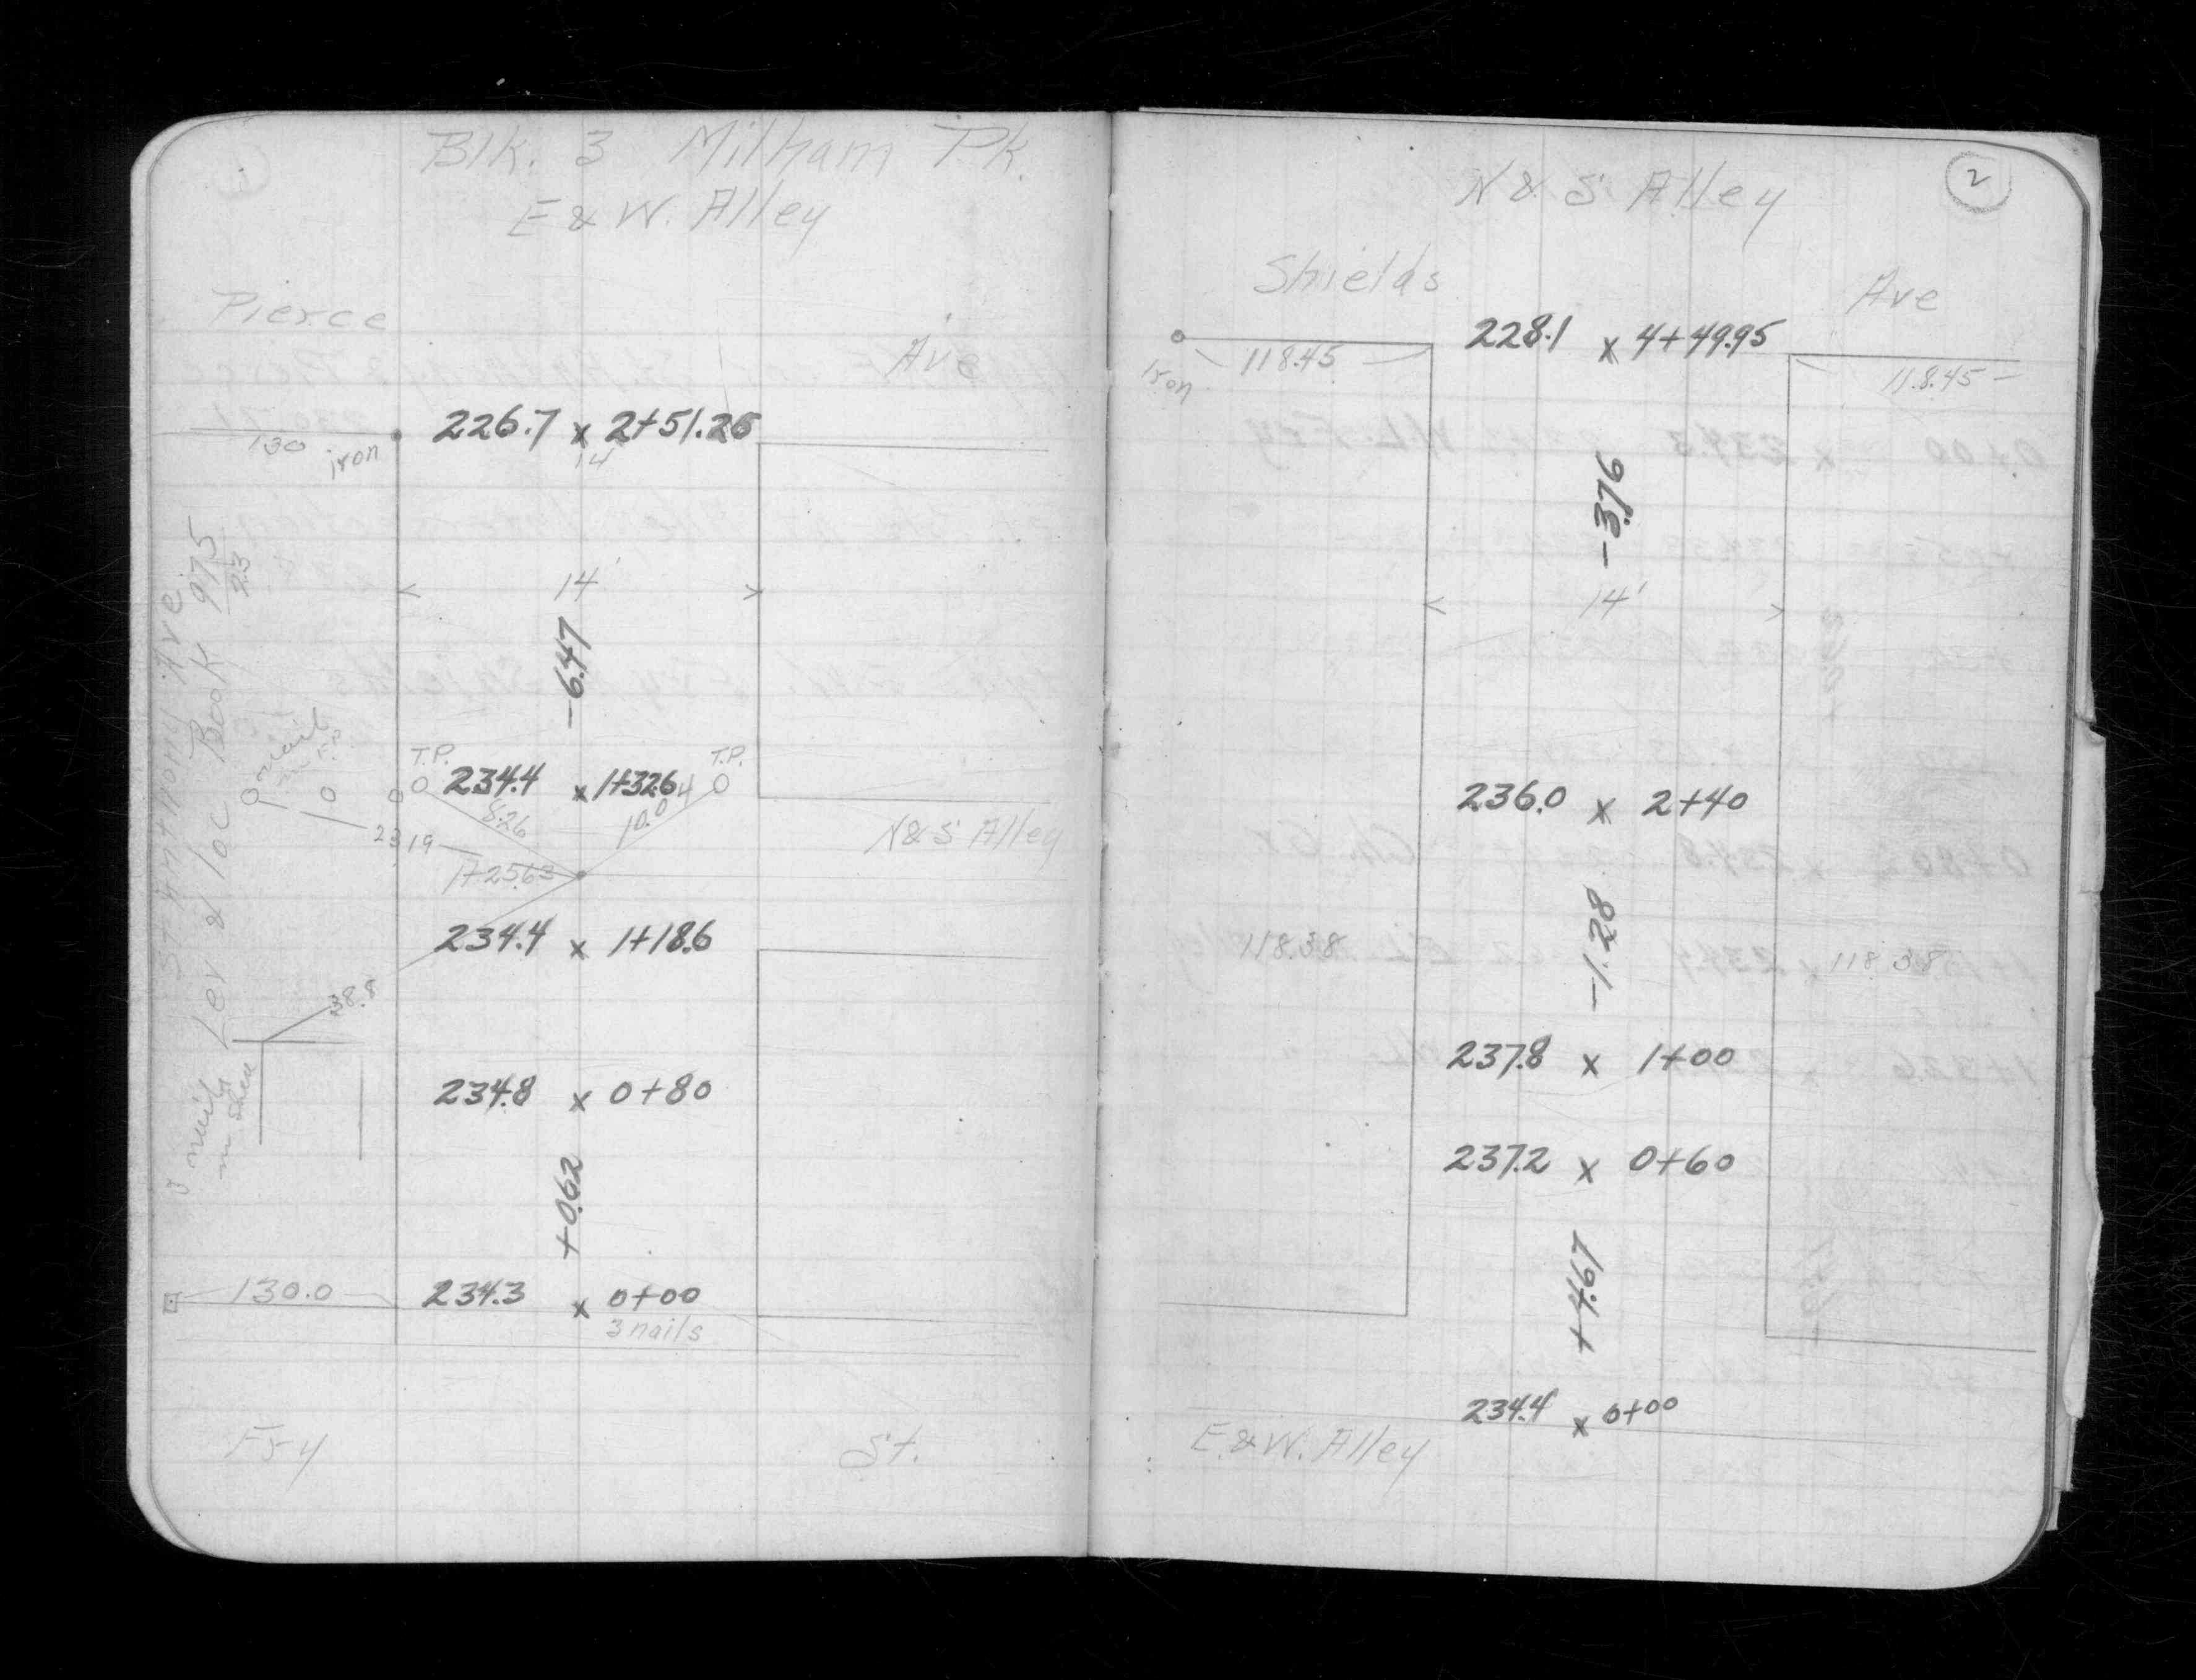 Blk. 3 Milham Pk.
E & W. Alley
Pierce
Ave
226.7 x 2+51.26
130
iron
14
14'
-6.47
St Anthony Ave
Lev & loc Book 975
23
T.P.
T.P.
234.4 x 1+32.6
8.26
10.04
2319
1+25.63
N & S Alley
234.4 x 1+18.6
38.8
234.8 x 0+80
+0.62
130.0
234.3 x 0+00
3 nails
Fry
St.
2
N & S Alley
Shields
Ave
228.1 x 4+49.95
iron
118.45
118.45
-3.76
14'
236.0 x 2+40
-1.28
118.38
118.38
237.8 x 1+00
237.2 x 0+60
+4.67
234.4 x 0+00
E. & W. Alley